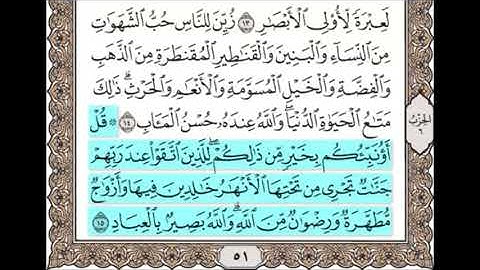 لَعِبْرَةً لِّأُولِي الْأَبْصَارِ ١٣ زُيِّنَ لِلنَّاسِ حُبُّ الشَّهَوَاتِ
مِنَ النِّسَاءِ وَالْبَنِينَ وَالْقَنَاطِيرِ الْمُقَنطَرَةِ مِنَ الذَّهَبِ
وَالْفِضَّةِ وَالْخَيْلِ الْمُسَوَّمَةِ وَالْأَنْعَامِ وَالْحَرْثِ ۗ ذَٰلِكَ
مَتَاعُ الْحَيَاةِ الدُّنْيَا ۖ وَاللَّهُ عِندَهُ حُسْنُ الْمَآبِ ١٤ ۞ قُلْ
أَؤُنَبِّئُكُم بِخَيْرٍ مِّن ذَٰلِكُمْ ۚ لِلَّذِينَ اتَّقَوْا عِندَ رَبِّهِمْ
جَنَّاتٌ تَجْرِي مِن تَحْتِهَا الْأَنْهَارُ خَالِدِينَ فِيهَا وَأَزْوَاجٌ
مُّطَهَّرَةٌ وَرِضْوَانٌ مِّنَ اللَّهِ ۗ وَاللَّهُ بَصِيرٌ بِالْعِبَادِ ١٥
الحزب
٦
٥١